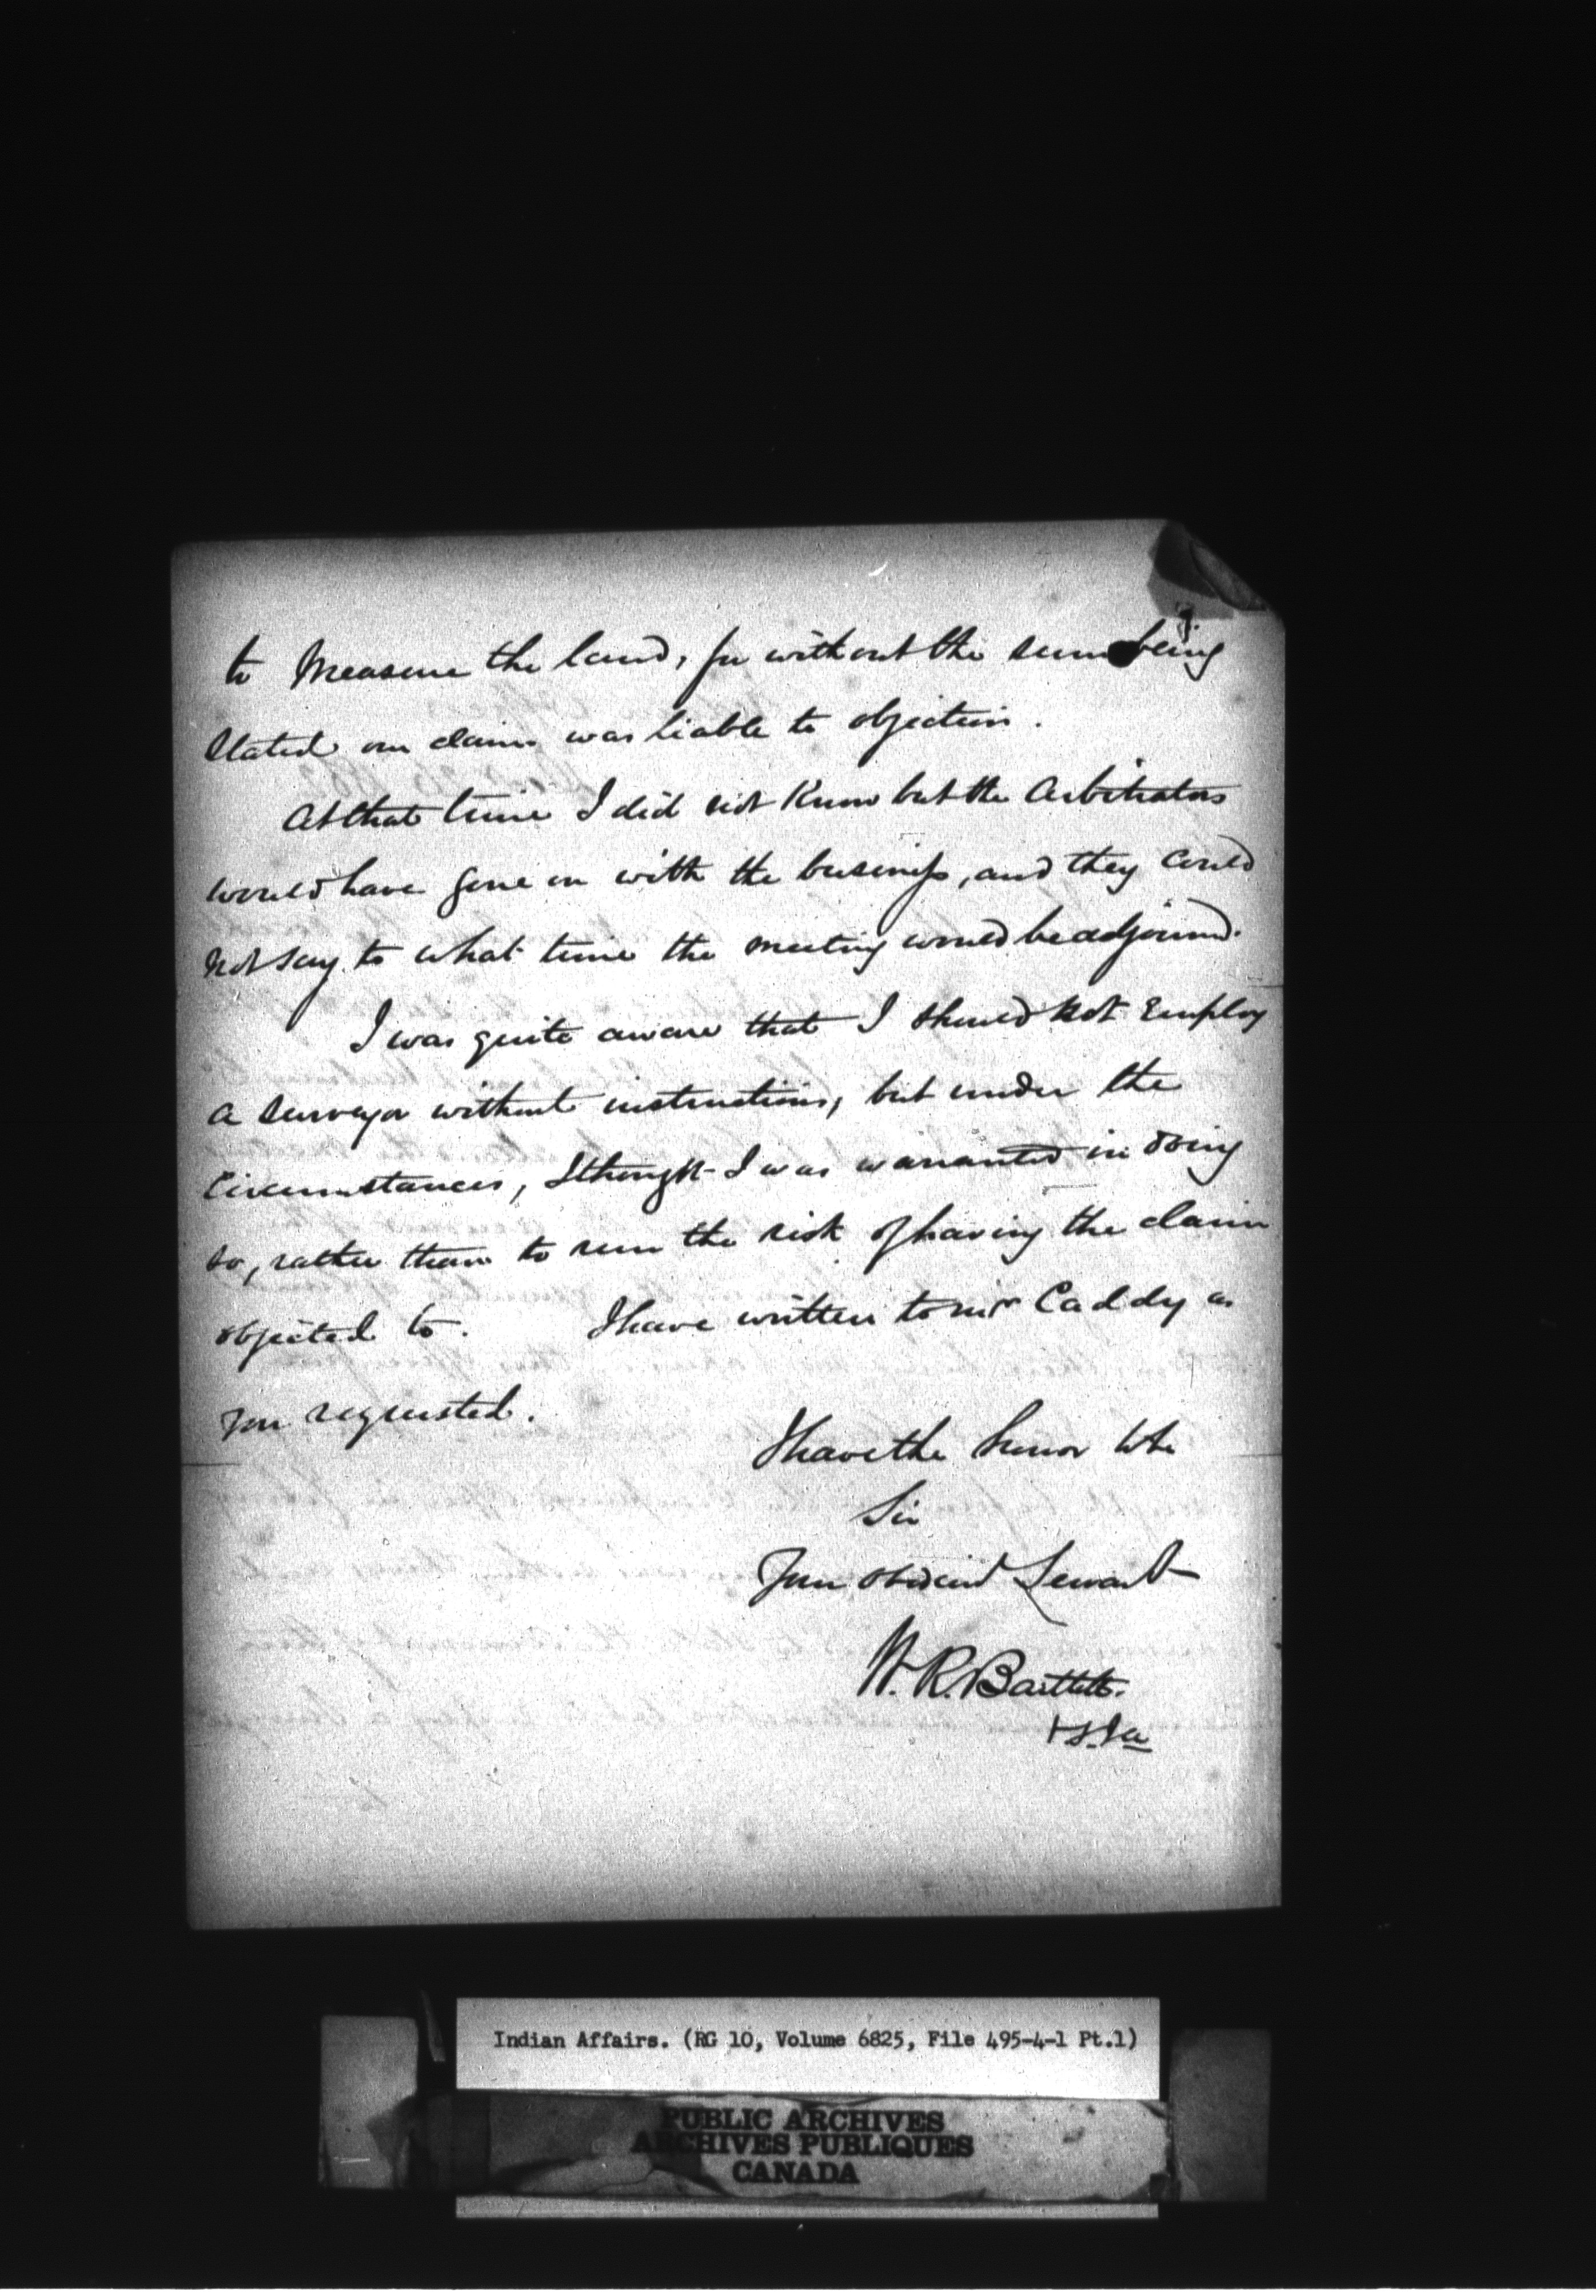 3.
to Measure the land, for without the sum being
stated our claim was liable to objection.
At that time I did not Know but the Arbitrators
would have gone on with the business, and they could
not say to what time the meeting would be adjourned.
I was quite aware that I should not Employ
a Surveyor without instructions, but under the
Circumstances, I thought I was warranted in doing
so, rather than to run the risk of having the claim
objected to. I have written to Mr Caddy as
you requested.
I have the honor to be
Sir
Your obedient Servant
W. R. Bartlett.
Indian Affairs. (RG 10, Volume 6825, File 495-4-1 Pt.1)
PUBLIC ARCHIVES
ARCHIVES PUBLIQUES
CANADA